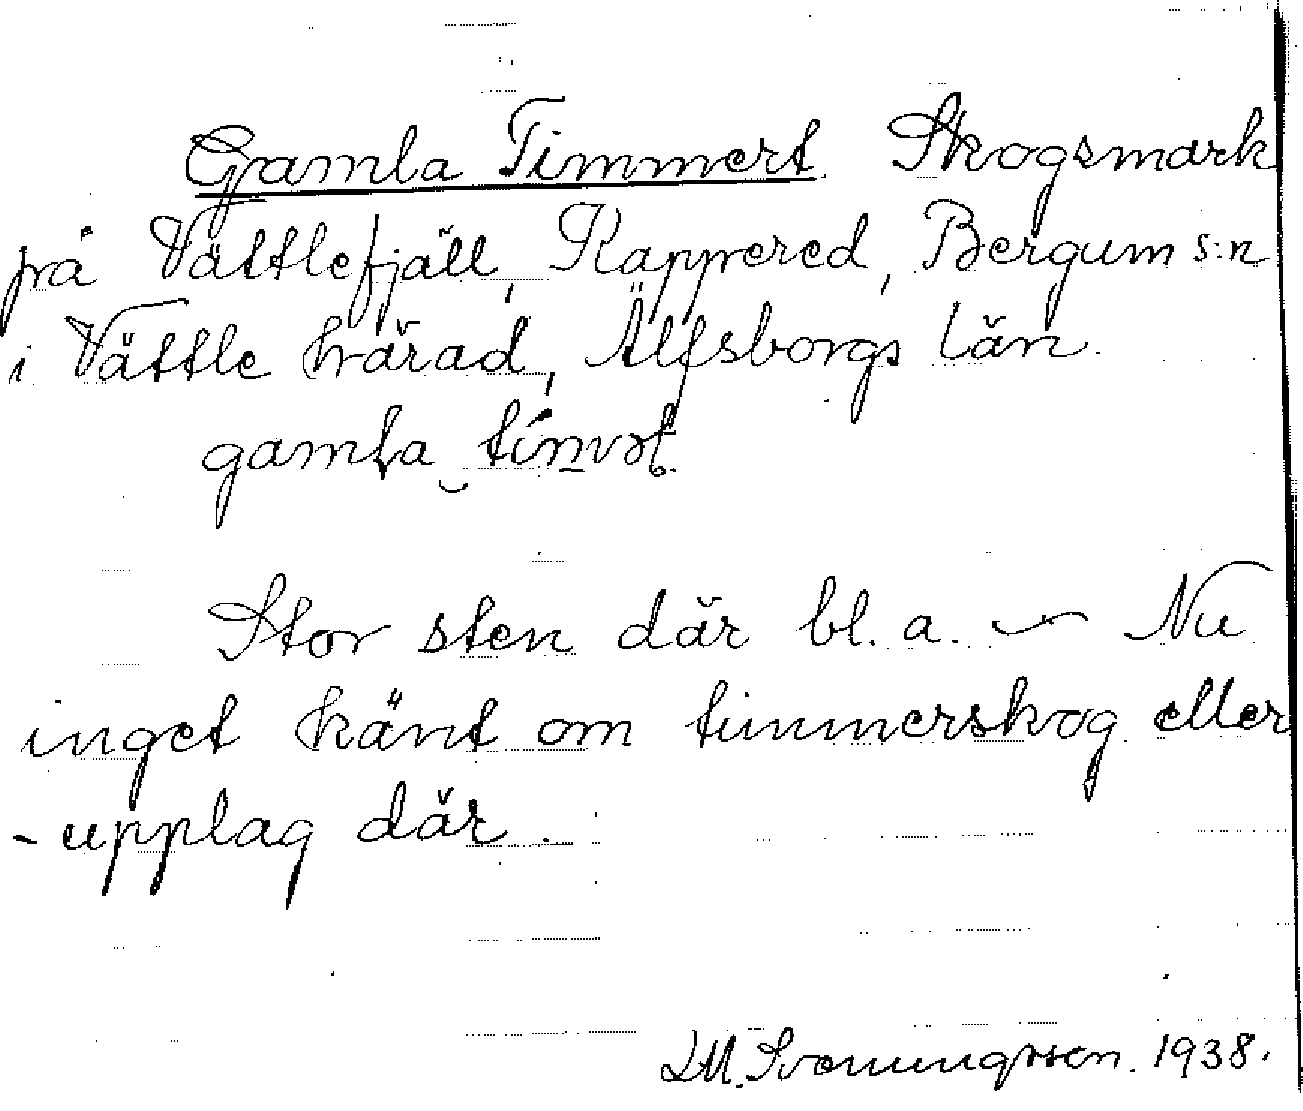 Gamla Timmert. Skogsmark
på Vättlefjäll, Rappered, Bergum s:n
i Vättle härad, Älfsborgs län.
gamla
Stor sten där bl. a. — Nu
inget känt om timmerskog eller
-upplag där.
1938.